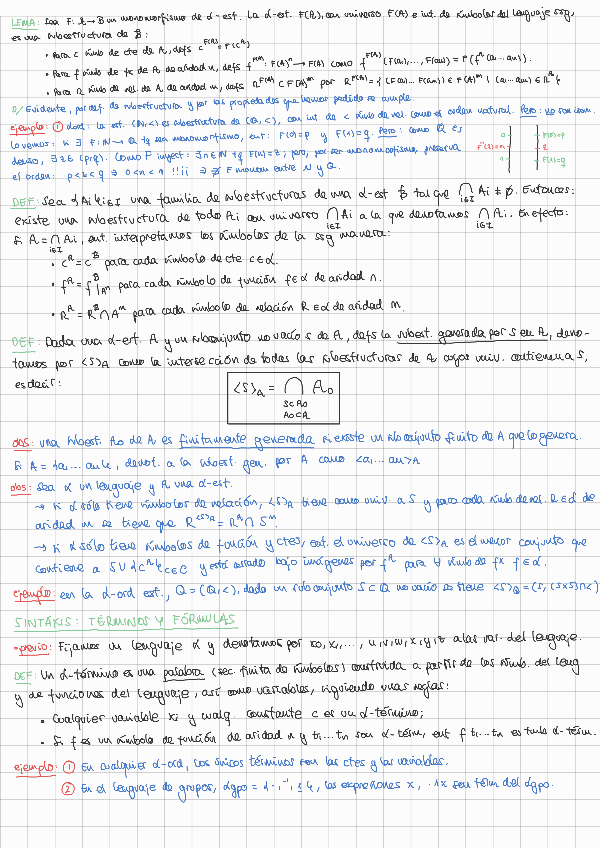 LEMA: Sea F: A → B un monomorfismo de α-est. La α-est. F(A), con universo F(A) e int. de símbolos del lenguaje ssg,
es una subestructura de B:
• Para c símb de cte de A, defs c^F(A) = F(c^A)
• Para f símb de fx de A de aridad n, defs f^F(A): F(A)^n → F(A) como f^F(A)(F(a1),..., F(an)) = F(f^A(a1...an)).
• Para R símb de rel. de A de aridad m, defs R^F(A) ⊂ F(A)^m por R^F(A) = {(F(a1)... F(am)) ∈ F(A)^m | (a1...am) ∈ R^A}
D/ Evidente, por def. de subestructura y por las propiedades que hemos pedido se cumple.
ejemplo: ① α ord: la est. (N,<) es subestructura de (Q,<), con int. de < símb de rel. como el orden natural. Pero: no son isom.
Lo vemos: si ∃ F: N → Q tq sea monomorfismo, ent: F(0)=p y F(1)=q. Pero: como Q es
denso, ∃ z ∈ (p,q). Como F inyect: ∃ n ∈ N tq F(n)=z; pero, por ser monomorfismo, preserva
el orden: p<z<q ⇒ 0<n<1 !!¡¡ ⇒ ∄ F monom entre N y Q.
0 F(0)=p
F⁻¹(z)=n z
1 F(1)=q
DEF: Sea {Ai}i∈I una familia de subestructuras de una α-est B tal que ⋂i∈I Ai ≠ ∅. Entonces:
existe una subestructura de todo Ai con universo ⋂i∈I Ai a la que denotamos ⋂i∈I Ai. En efecto:
Si A = ⋂i∈I Ai, ent. interpretamos los símbolos de la ssg manera:
• c^A = c^B para cada símbolo de cte c ∈ α.
• f^A = f^B|A^n para cada símbolo de función f ∈ α de aridad n.
• R^A = R^B ∩ A^m para cada símbolo de relación R ∈ α de aridad m.
DEF: Dada una α-est. A y un subconjunto no vacío S de A, defs la subest. generada por S en A, deno-
tamos por <S>A como la intersección de todas las subestructuras de A cuyos univ. contienen a S,
es decir:
<S>A = ⋂ S⊂A0 A0⊂A A0
obs: una subest. A0 de A es finitamente generada si existe un subconjunto finito de A que lo genera.
Si A = {a1...an}, denot. a la subest. gen. por A como <a1...an>A
obs: Sea α un lenguaje y A una α-est.
→ Si α sólo tiene símbolos de relación, <S>A tiene como univ. a S y para cada símb de rel. R ∈ α de
aridad m se tiene que R^<S>A = R^A ∩ S^m.
→ Si α sólo tiene símbolos de función y ctes, ent. el universo de <S>A es el menor conjunto que
contiene a S ∪ {c^A}c∈C y está cerrado bajo imágenes por f^A para ∀ símb de fx f ∈ α.
ejemplo: en la α-ord est., Q = (Q,<), dado un subconjunto S ⊂ Q no vacío se tiene <S>Q = (S, (S×S)∩<)
SINTAXIS: TÉRMINOS Y FÓRMULAS
previo: Fijamos un lenguaje α y denotamos por x0, x1, ..., u, v, w, x, y, z a las var. del lenguaje.
DEF: Un α-término es una palabra (sec. finita de símbolos) construida a partir de los símb. del leng
y de funciones del lenguaje, así como variables, siguiendo unas reglas:
• Cualquier variable xi y cualq. constante c es un α-término;
• Si f es un símbolo de función de aridad n y t1...tn son α-térm, ent f t1...tn es tmb α-térm.
ejemplo: ① En cualquier α-ord, los únicos términos son las ctes y las variables.
② En el lenguaje de grupos, αgpo = {·, ⁻¹, 1}, las expresiones x, ·1x son térm del αgpo.